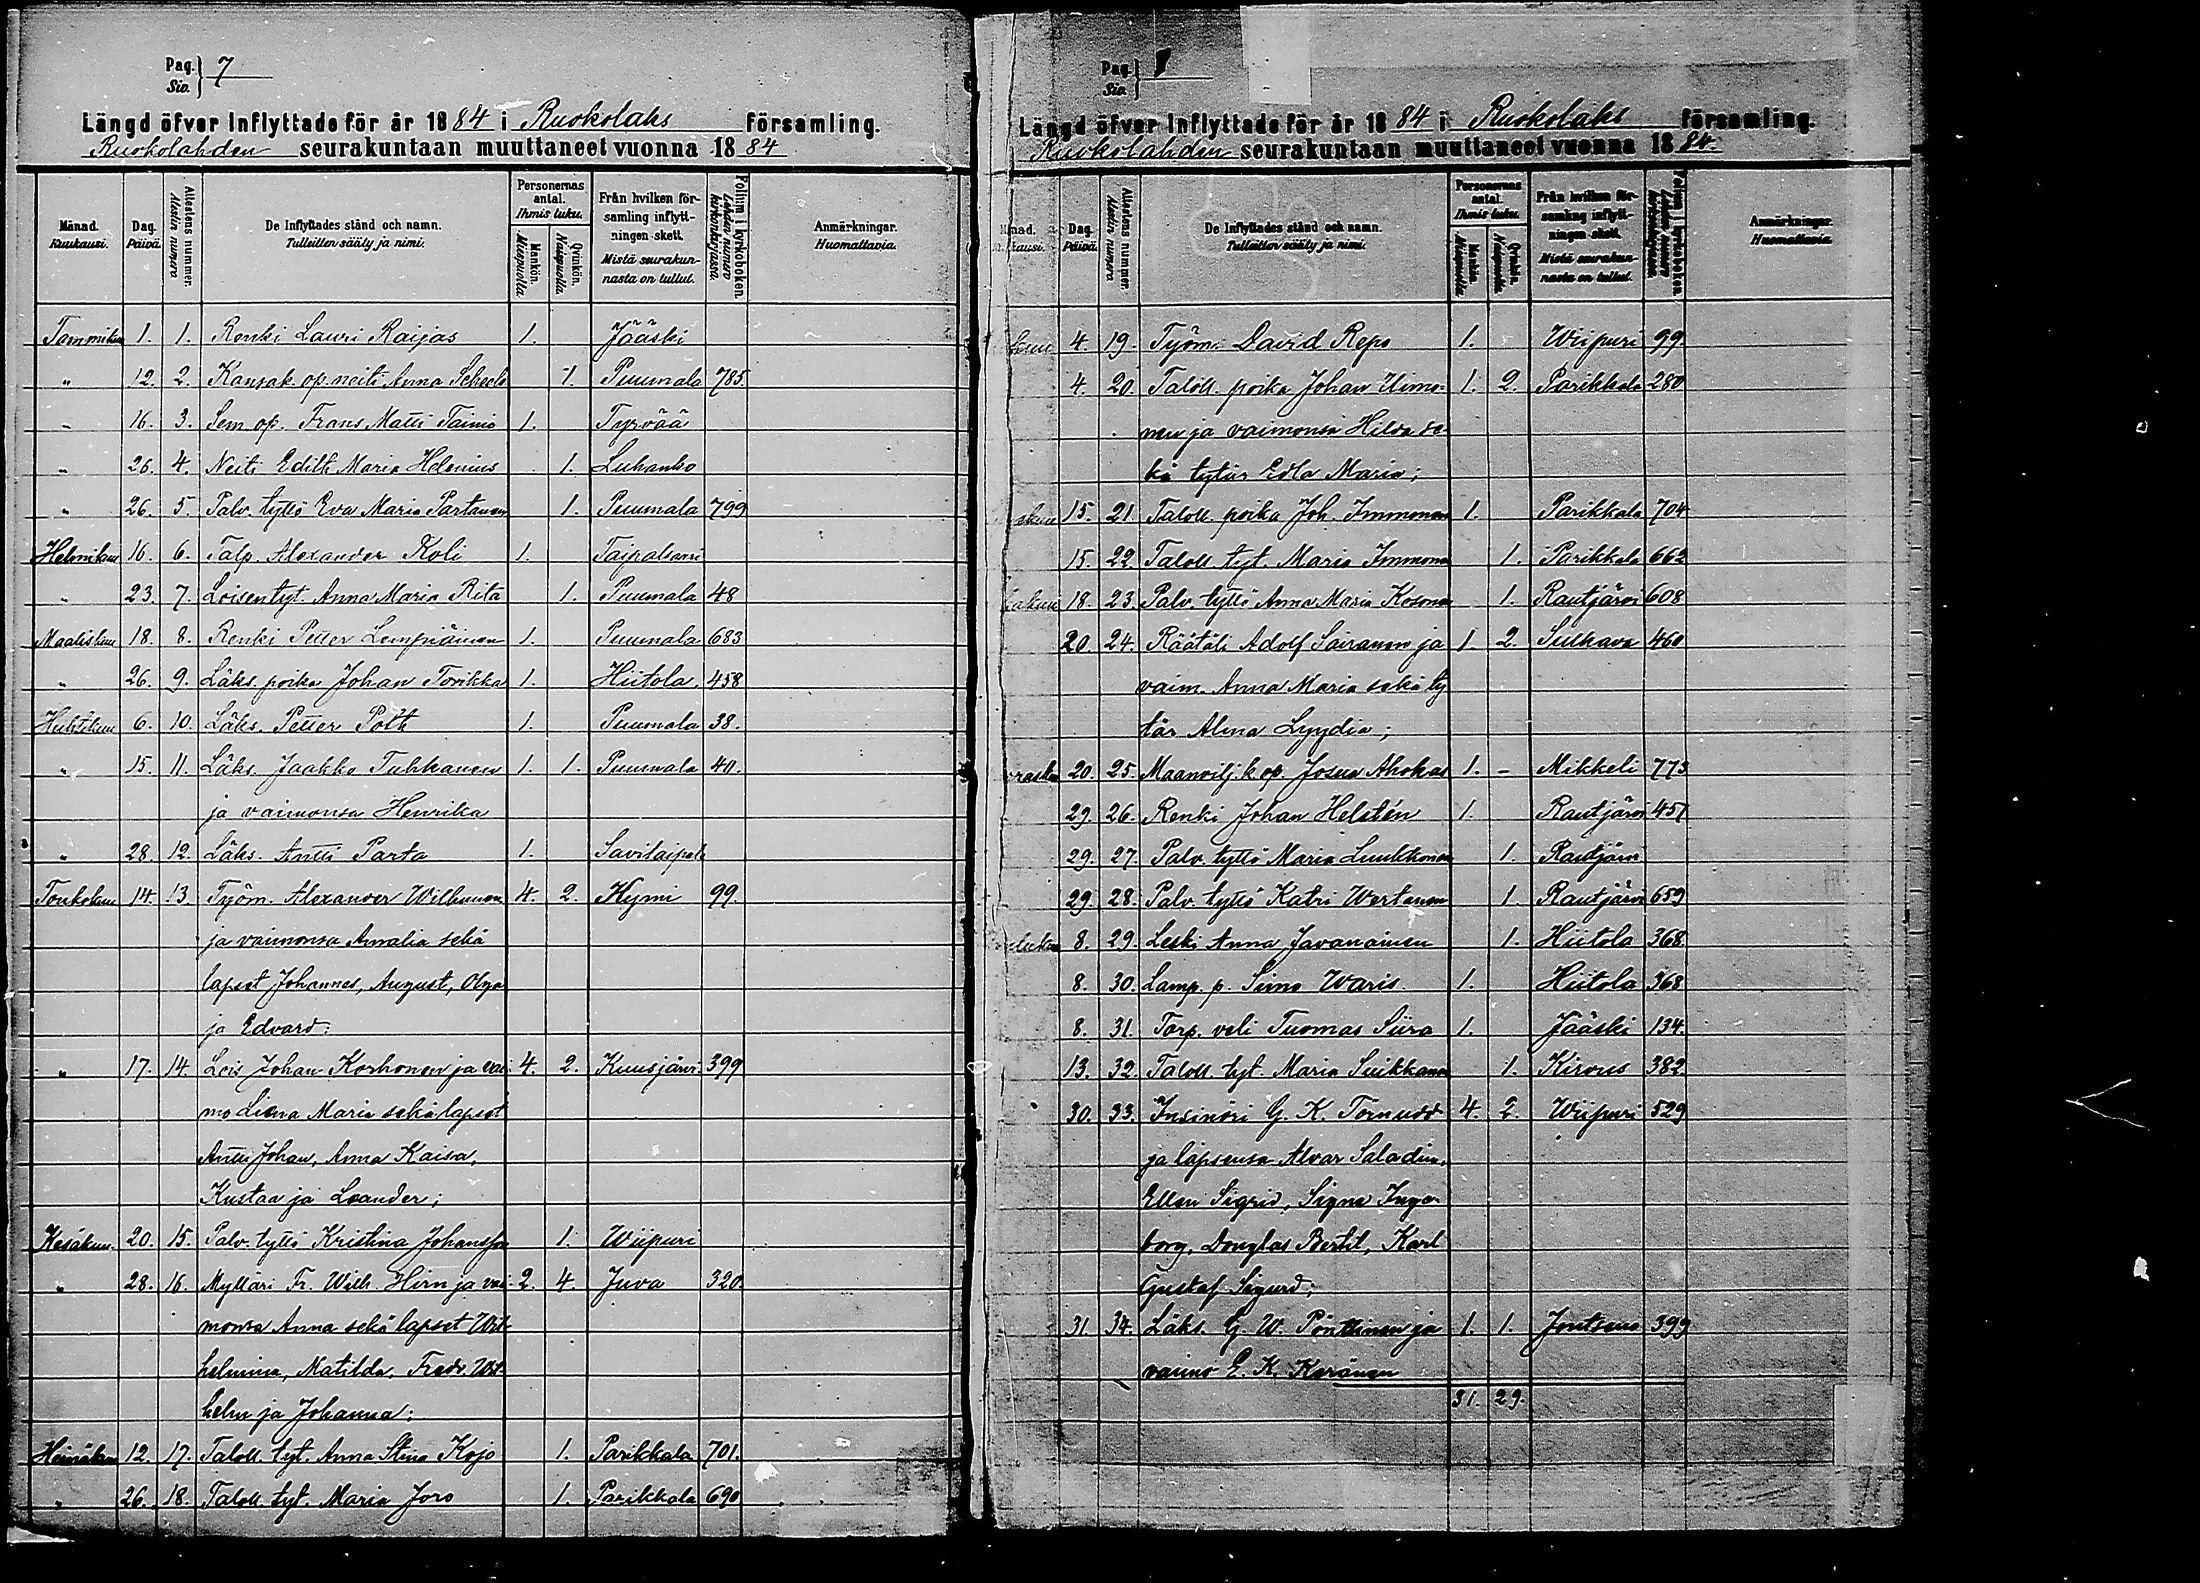 Pag. Siv. 7
Längd öfver Inflyttade för år 1884 i Ruokolaks församling.
Ruokolahden seurakuntaan muuttaneet vuonna 1884
Månad. Kuukausi. Dag. Päivä. Attestens nummer. Atestin numero De Inflyttades stånd och namn. Tulleitten sääty ja nimi. Personernas antal. Ihmis luku. Mankön. Miespuolia Qvinkön. Naispuolia. Från hvilken församling inflyttningen skett. Mistä seurakunnasta on tullut. Folium i kyrkoboken. Lehden numero kirkonkirjassa. Anmärkningar. Huomattavia.
Tammikuu 1. 1. Renki Lauri Raijas 1. Jääski
" 12. 2. Kansak. op. neiti Anna Scheele 1. Puumala 785.
" 16. 3. Sem. op. Frans Matti Tainio 1. Tyrvää
" 26. 4. Neiti Edith Maria Helenius 1. Luhanko
" 26. 5. Palv. tyttö Eva Maria Partanen 1. Puumala 799
Helmikuu 16. 6. Talp. Alexander Koli 1. Taipalsaari
" 23. 7. Loisen tyt. Anna Maria Ritä 1. Puumala 48
Maaliskuu 18. 8. Renki Petter Lempiäinen 1. Puumala 683
" 26. 9. Läks. poika Johan Torikka 1. Hiitola. 458
Huhtikuu 6. 10. Läks. Petter Pöth 1. Puumala 38.
" 15. 11. Läks. Jaakko Tuhkanen 1. 1. Puumala 40.
ja vaimonsa Henrika
" 28. 12. Läks. Antti Parta 1. Savitaipale
Toukokuu 14. 13. Työm. Alexander Wilhunen 4. 2. Kymi 99.
ja vaimonsa Amalia sekä
lapset Johannes, August, Olga
ja Edvard:
" 17. 14. Lois Johan Korhonen ja vai- 4. 2. Kuusjärvi 399
mo Liena Maria sekä lapset
Antti Johan, Anna Kaisa,
Kustaa ja Leander;
Kesäkuu. 20. 15. Palv. tyttö Kristina Johansson 1. Wiipuri
" 28. 16. Mylläri Fr. Wilh. Hirn ja vai- 2. 4. Juva 320.
monsa Anna sekä lapset Wil-
helmina, Matilda, Fredr. Wil-
helm ja Johanna:
Heinäkuu 12. 17. Taloll. tyt. Anna Stina Kojo 1. Parikkala 701.
" 26. 18. Taloll. tyt. Maria Joro 1. Parikkala 690
Pag. Siv.
Längd öfver Inflyttade för år 1884 i Ruokolaks församling.
Ruokolahden seurakuntaan muuttaneet vuonna 1884.
Dag. Päivä. Attestens nummer. Atestin numero De Inflyttades stånd och namn. Tulleitten sääty ja nimi. Personernas antal. Ihmis luku. Mankön. Miespuolia Qvinkön. Naispuolia. Från hvilken församling inflyttningen skett. Mistä seurakunnasta on tullut. Folium i kyrkoboken. Lehden numero kirkonkirjassa. Anmärkningar. Huomattavia.
4. 19. Työm. David Repo 1. Wiipuri 99.
4. 20. Taloll. poika Johan Uimo- 1. 2. Parikkala 280
nen ja vaimonsa Hilda se-
kä tytär Edla Maria;
15. 21. Taloll. poika Joh. Immonen 1. Parikkala 704
15. 22. Taloll. tyt. Maria Immonen 1. Parikkala 662
18. 23. Palv. tyttö Anna Maria Kosonen 1. Rautjärvi 608
20. 24. Räätäli Adolf Sairanen ja 1. 2. Sulkava 460
vaim. Anna Maria sekä ty
tär Alma Lyydia;
20. 25. Maanvilj. k. op. Josua Ahokas 1. - Mikkeli 773
29. 26. Renki Johan Helstén 1. Rautjärvi 451
29. 27. Palv. tyttö Maria Luukkonen 1. Rautjärvi
29. 28. Palv. tyttö Katri Wertanen 1. Rautjärvi 659
8. 29. Leski Anna Javanainen 1. Hiitola 368.
8. 30. Lamp. p. Simo Waris 1. Hiitola 368
8. 31. Torp. veli Tuomas Siira 1. Jääski 134.
13. 32. Taloll. tyt. Maria Suikkanen 1. Kirvus 382.
30. 33. Insinöri G. K. Törnudd 4. 2. Wiipuri 529
ja lapsensa Alvar Saladin,
Ellen Sigrid, Signe Inge-
borg, Douglas Bertil, Karl
Gustaf Sigurd;
31. 34. Läks. G. W. Pönttinen ja 1. 1. Joutseno 399
vaimo E. K. Keränen
31. 29.